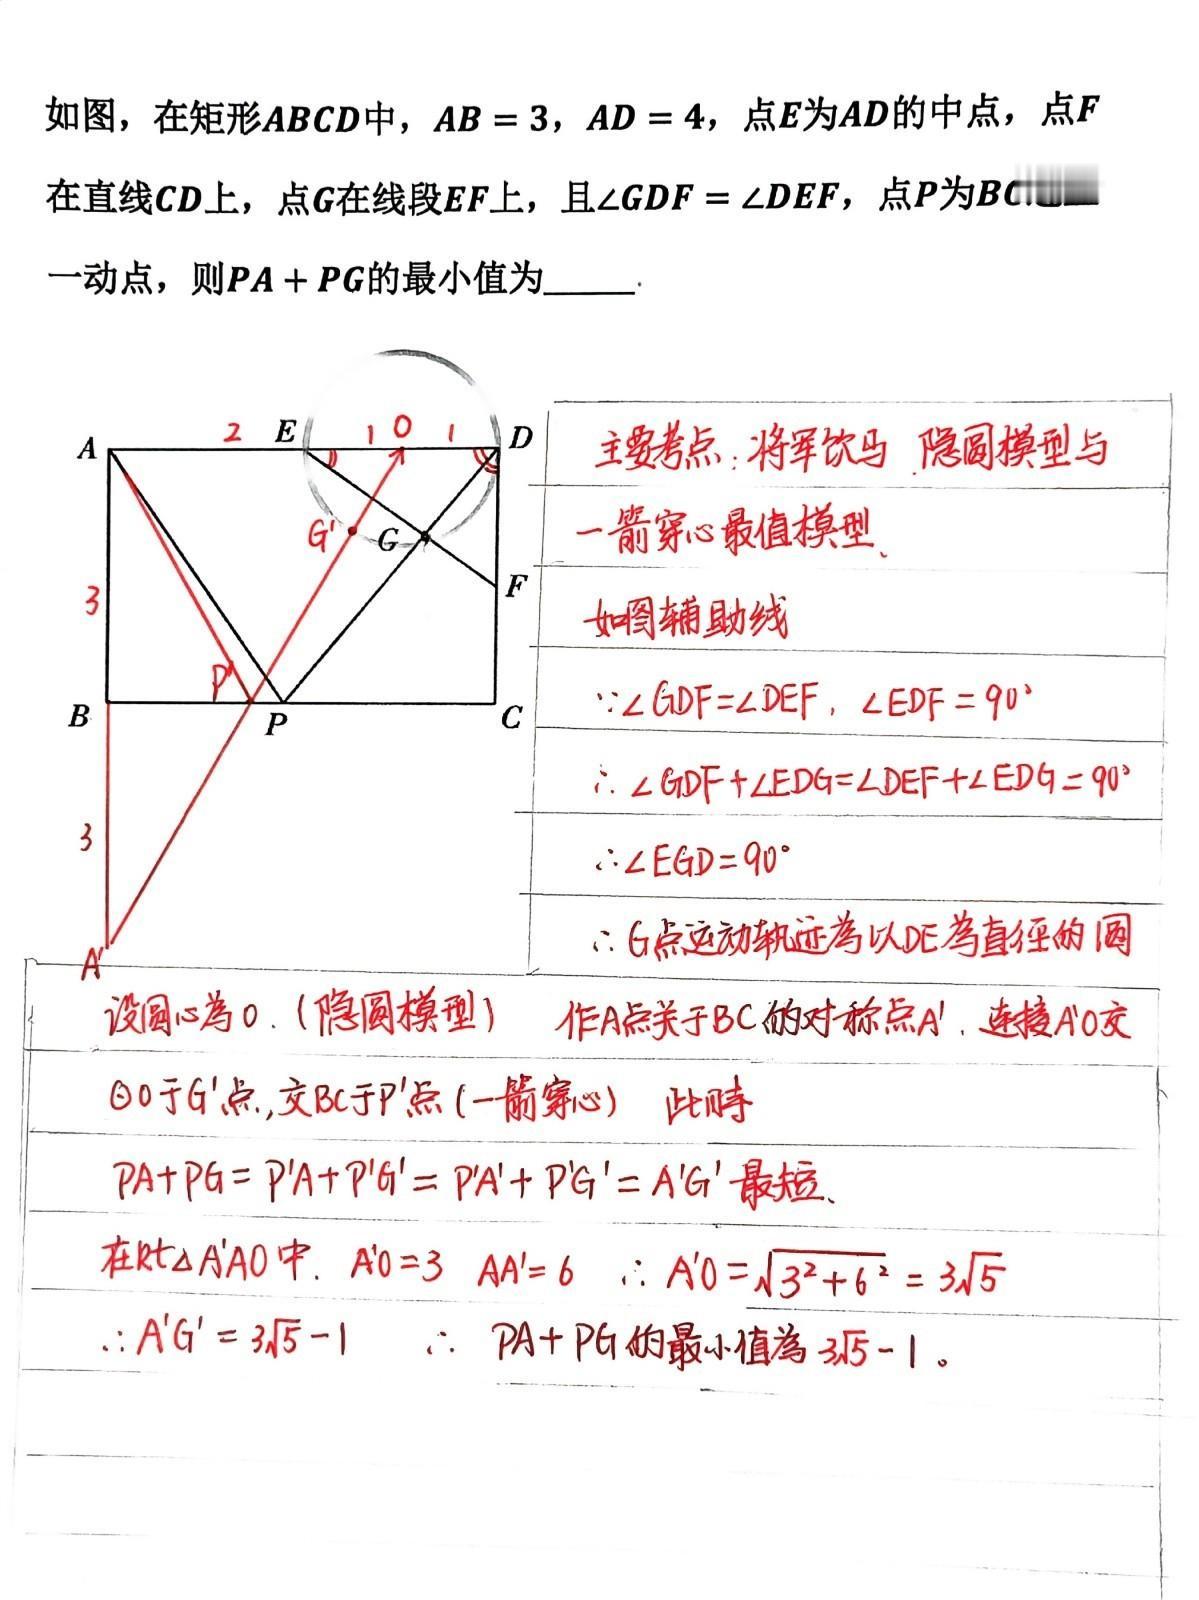 如图，在矩形ABCD中，AB = 3，AD = 4，点E为AD的中点，点F
在直线CD上，点G在线段EF上，且∠GDF = ∠DEF，点P为BC
一动点，则PA + PG的最小值为_____.
A 2 E 1 O 1 D
G' G
3 F
P'
B P C
3
A'
主要考点：将军饮马、隐圆模型与
一箭穿心最值模型、
如图辅助线
∵∠GDF=∠DEF，∠EDF=90°
∴∠GDF+∠EDG=∠DEF+∠EDG=90°
∴∠EGD=90°
∴G点运动轨迹為以DE為直径的圆
设圆心為O.（隐圆模型） 作A点关于BC的对称点A'.连接A'O交
⊙O于G'点,交BC于P'点(一箭穿心) 此时
PA+PG=P'A+P'G'=P'A'+P'G'=A'G'最短、
在Rt△A'AO中. A'O=3 AA'=6 ∴A'O=√3²+6²=3√5
∴A'G'=3√5-1 ∴ PA+PG的最小值為3√5-1。